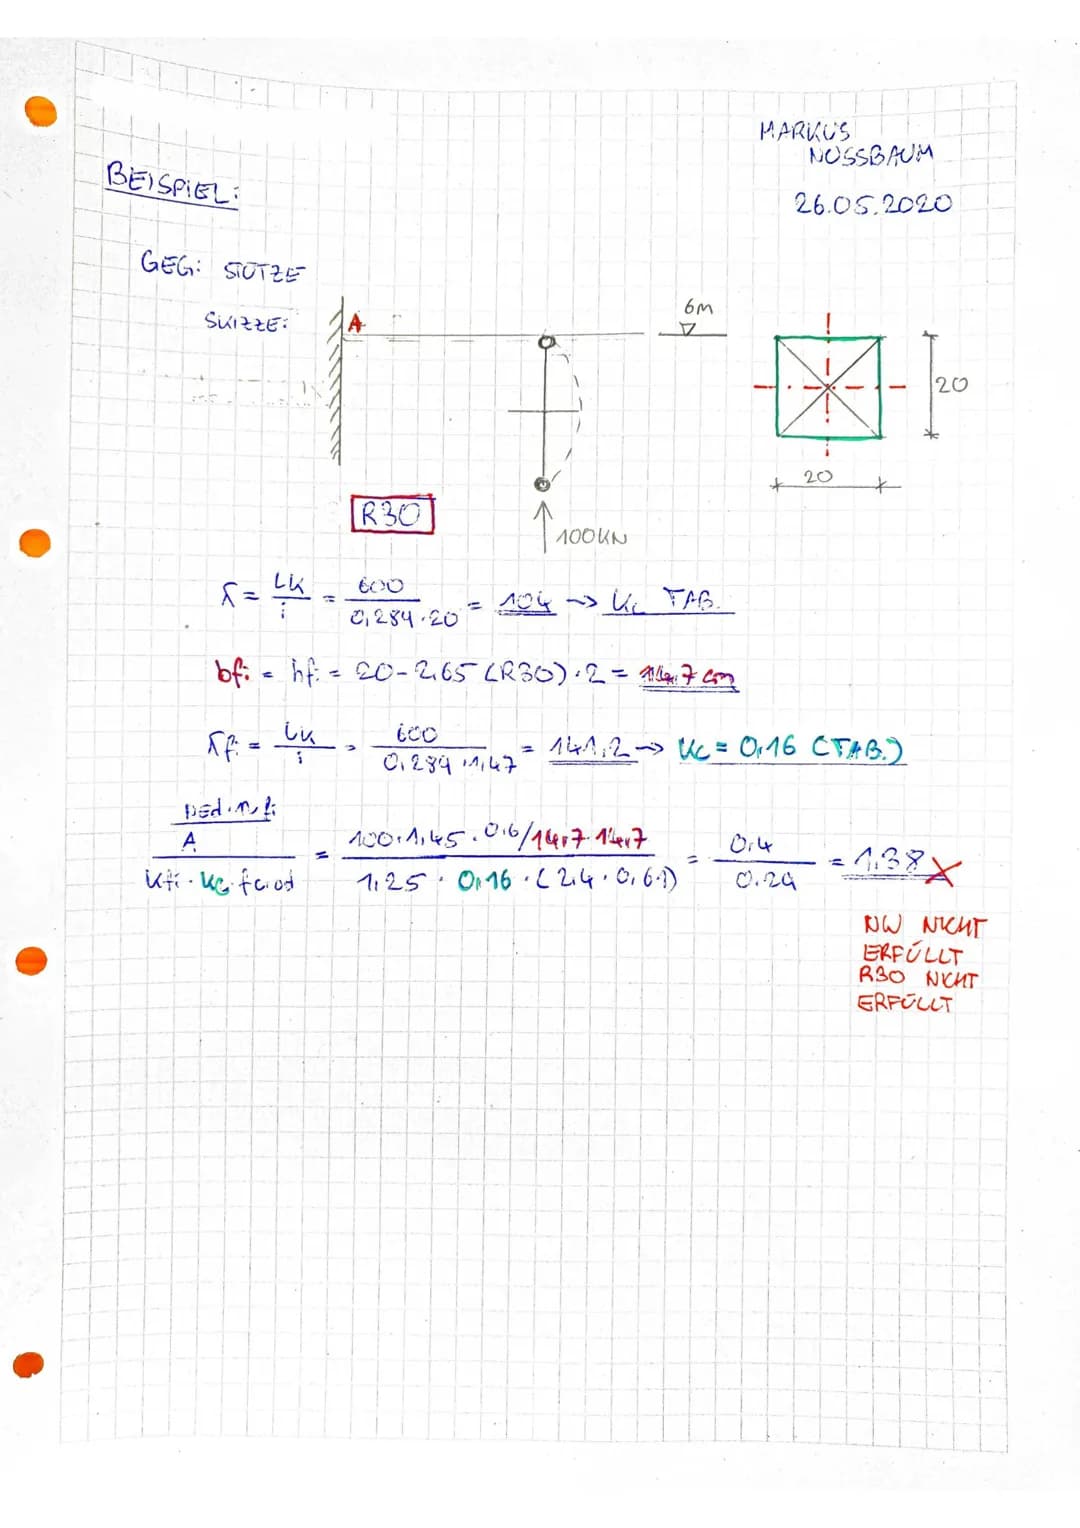 MARKUS
NUSSBAUM
26.05.2020
BEISPIEL:
GEG: STÜTZE
SKIZZE:
A
6M
20
20
R30
100KN
λ = LK / i = 600 / 0,284·20 = 104 → Kc TAB.
bfi = hfi = 20-2,65 (R30)·2 = 14,7 cm
λfi = LK / i = 600 / 0,289·1,47 = 141,2 → Kc = 0,16 (TAB.)
NEd·nfi / A / Kfi·Kc·fc,od = 100·1,45·0,6/14,7·14,7 / 1,25·0,16·(2,4·0,61) = 0,4 / 0.29 = 1,38 X
NW NICHT
ERFÜLLT
R30 NICHT
ERFÜLLT